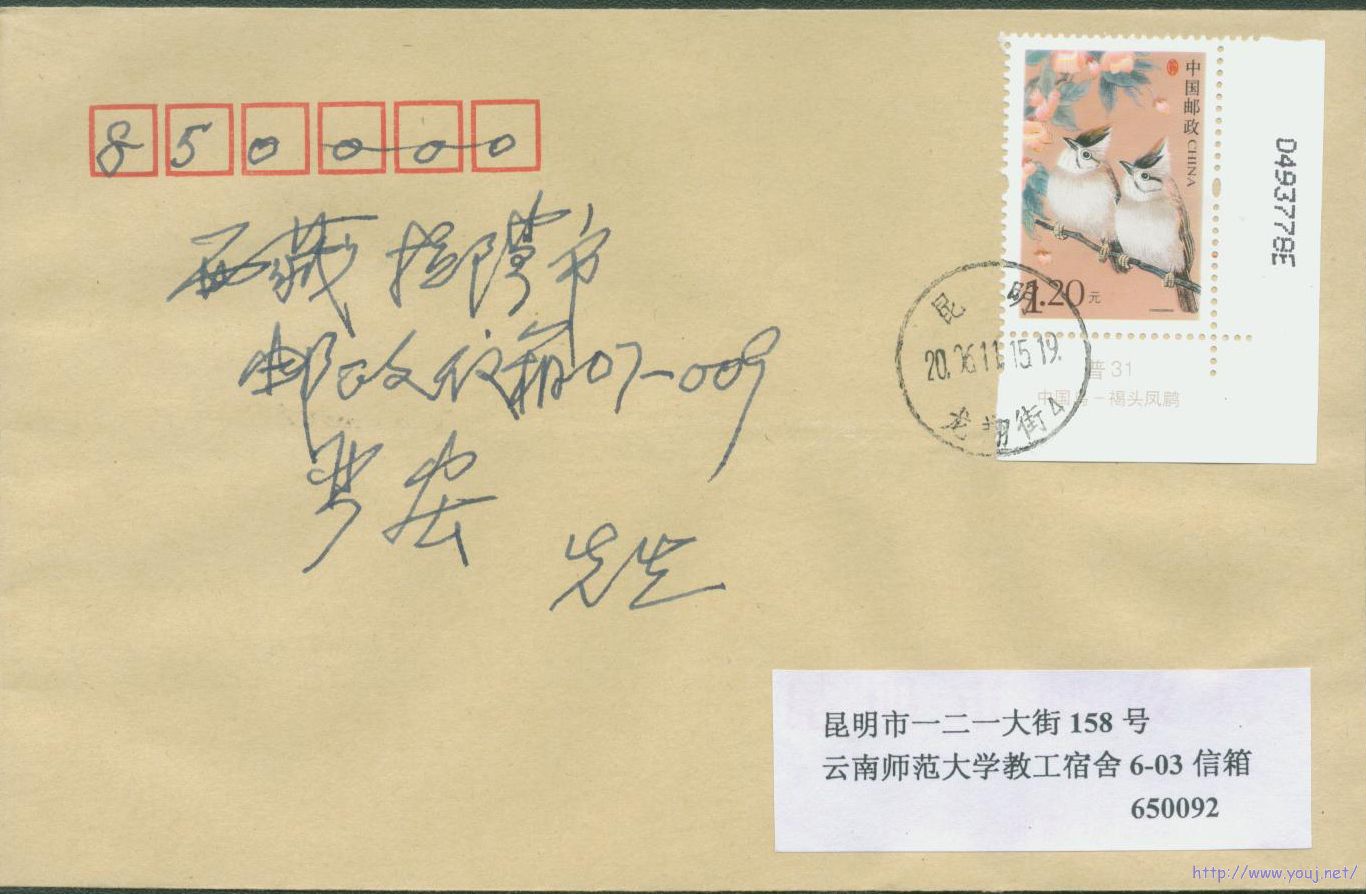 850000
西藏拉萨市
邮政信箱07-009
先生
中国邮政 CHINA
1.20元
0493778E
普31
中国鸟-褐头凤鹛
昆明
20.06.11.15.19.
昆明市一二一大街 158 号
云南师范大学教工宿舍 6-03 信箱
650092
http://www.youj.net/